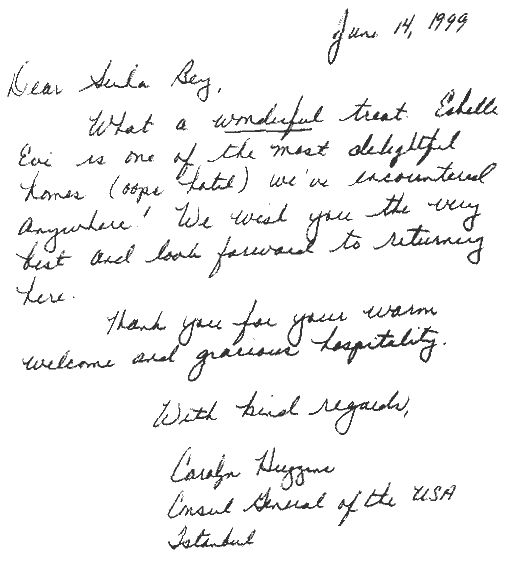 June 14, 1999
Dear Seula Bey,
What a wonderful treat. Eshelle
Evi is one of the most delightful
homes (oops hotel) we've encountered
anywhere! We wish you the very
best and look forward to returning
here.
Thank you for your warm
welcome and gracious hospitality.
With kind regards,
Carolyn Huggins
Consul General of the USA
Istanbul